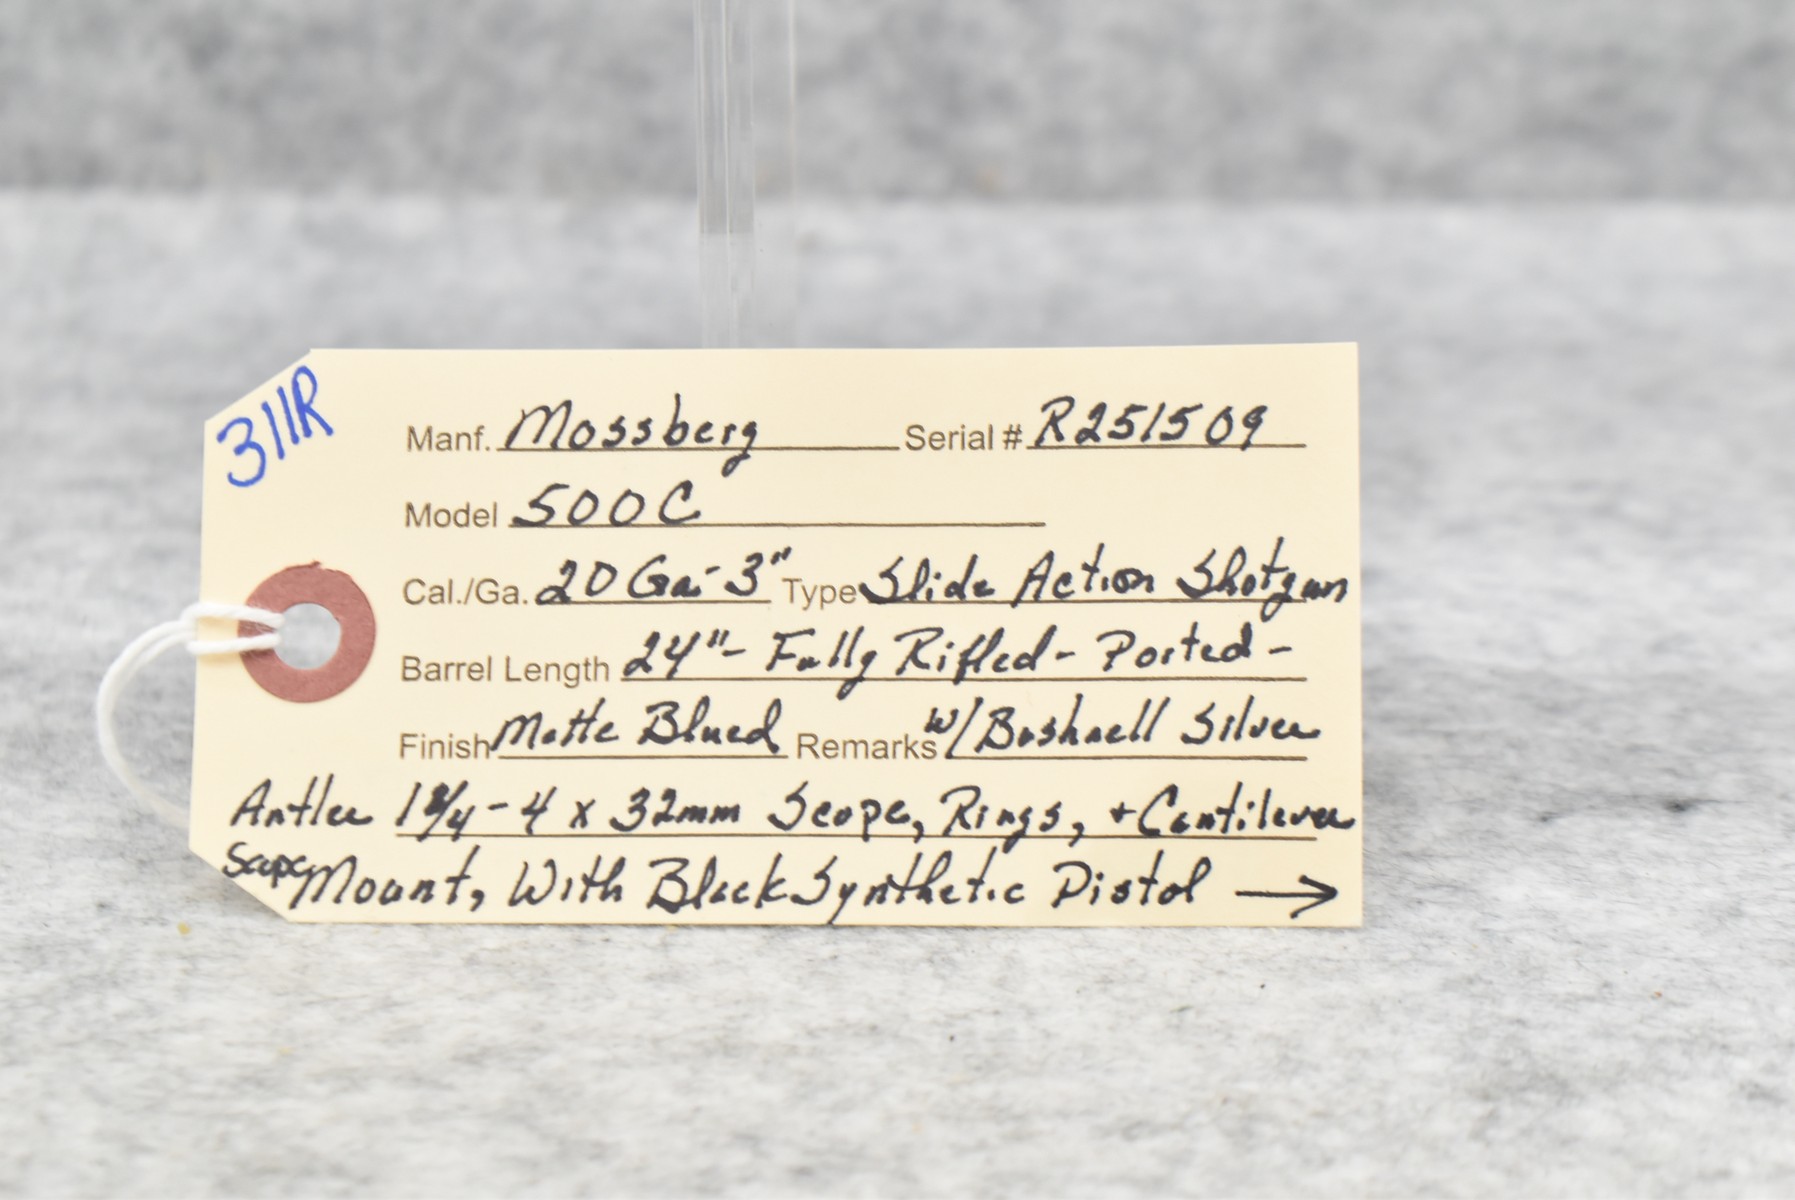 311R
Manf. Mossberg Serial # R251509
Model 500C
Cal./Ga. 20 Ga-3" Type Slide Action Shotgun
Barrel Length 24"- Fully Rifled- Ported-
Finish Matte Blued Remarks w/Bushnell Silver
Antler 1¾-4 x 32mm Scope, Rings, + Cantilever
Scope Mount, With Black Synthetic Pistol →